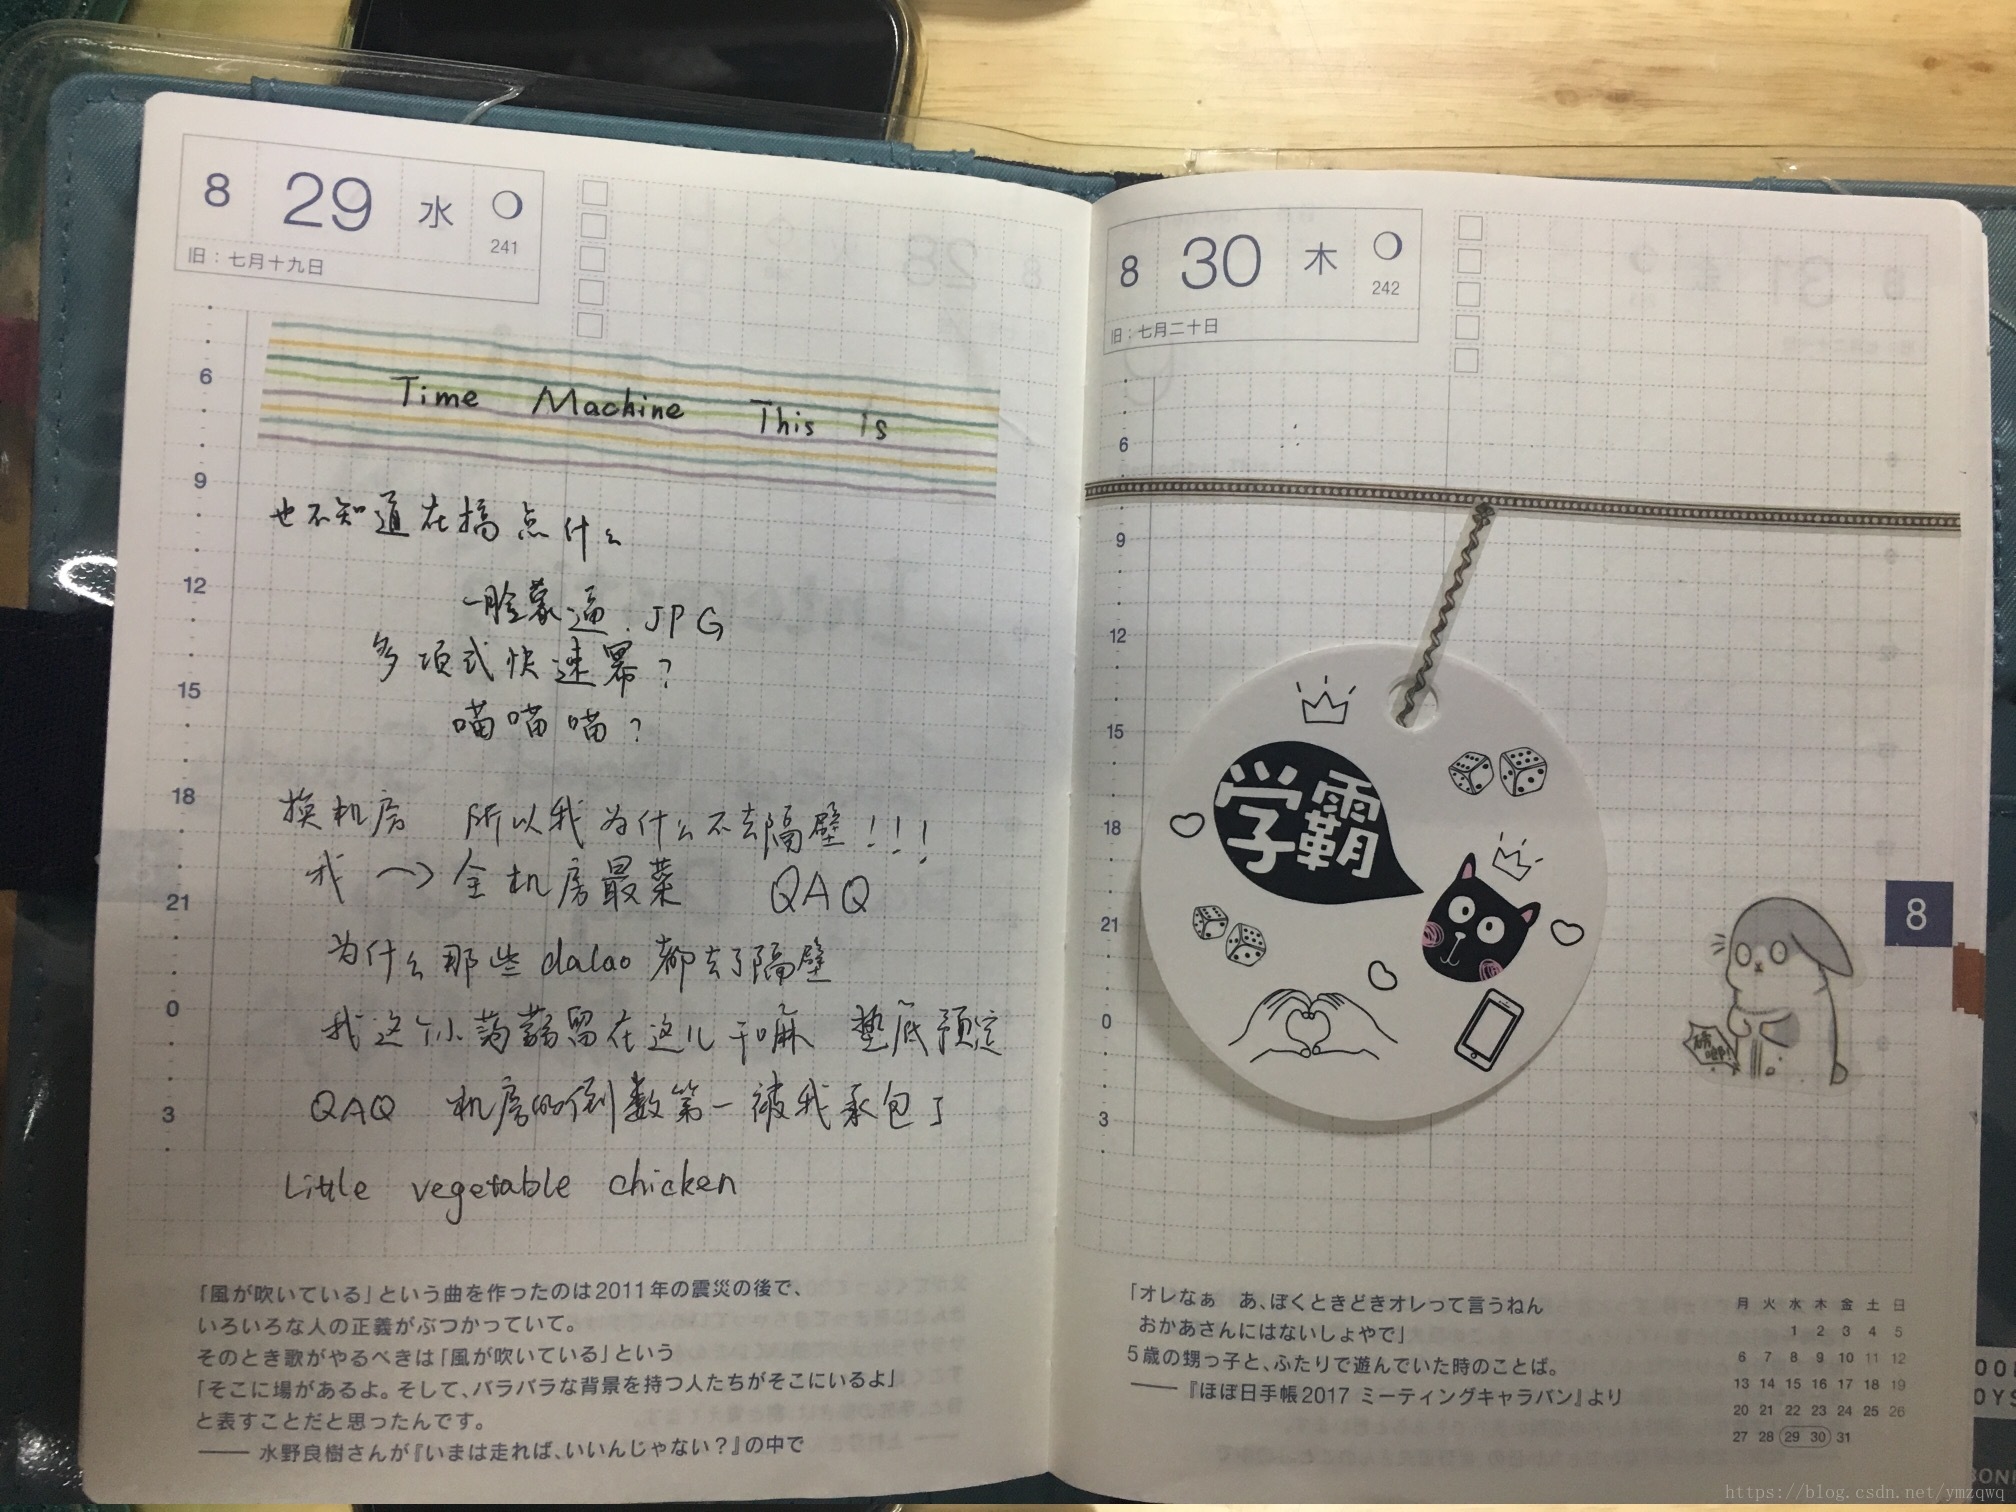 8 29 水
241
旧：七月十九日
6
9
12
15
18
21
0
3
Time Machine This is
也不知道在搞点什么
一脸蒙逼.JPG
多项式快速幂?
喵喵喵?
换机房 所以我为什么不去隔壁!!!
我 → 全机房最菜 QAQ
为什么那些dalao都去了隔壁
我这个小蒟蒻留在这儿干嘛 垫底预定
QAQ 机房的倒数第一被我承包了
Little vegetable chicken
「風が吹いている」という曲を作ったのは2011年の震災の後で、
いろいろな人の正義がぶつかっていて。
そのとき歌がやるべきは「風が吹いている」という
「そこに場があるよ。そして、バラバラな背景を持つ人たちがそこにいるよ」
と表すことだと思ったんです。
—— 水野良樹さんが『いまは走れば、いいんじゃない？』の中で
8 30 木
242
旧：七月二十日
6
9
12
15
18
21
0
3
学霸
8
「オレなぁ あ、ぼくときどきオレって言うねん
おかあさんにはないしょやで」
5歳の甥っ子と、ふたりで遊んでいた時のことば。
——『ほぼ日手帳2017 ミーティングキャラバン』より
月 火 水 木 金 土 日
1 2 3 4 5
6 7 8 9 10 11 12
13 14 15 16 17 18 19
20 21 22 23 24 25 26
27 28 29 30 31
https://blog.csdn.net/ymzqwq